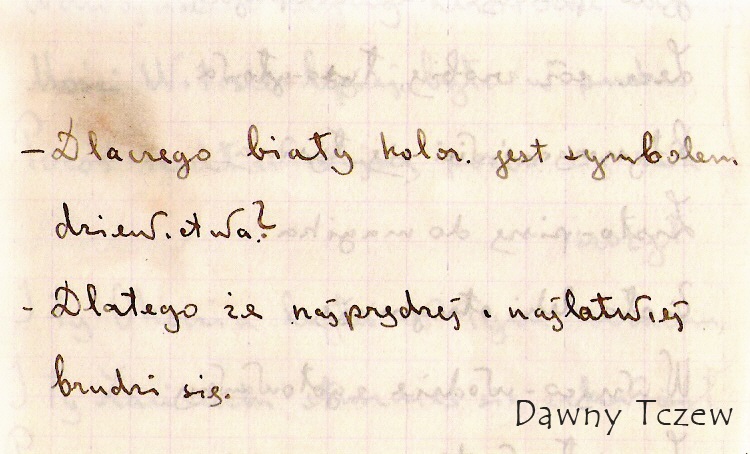 - Dlaczego biały kolor. jest symbolem
dziewictwa?
- Dlatego że najprędzej i najłatwiej
brudzi się.
Dawny Tczew